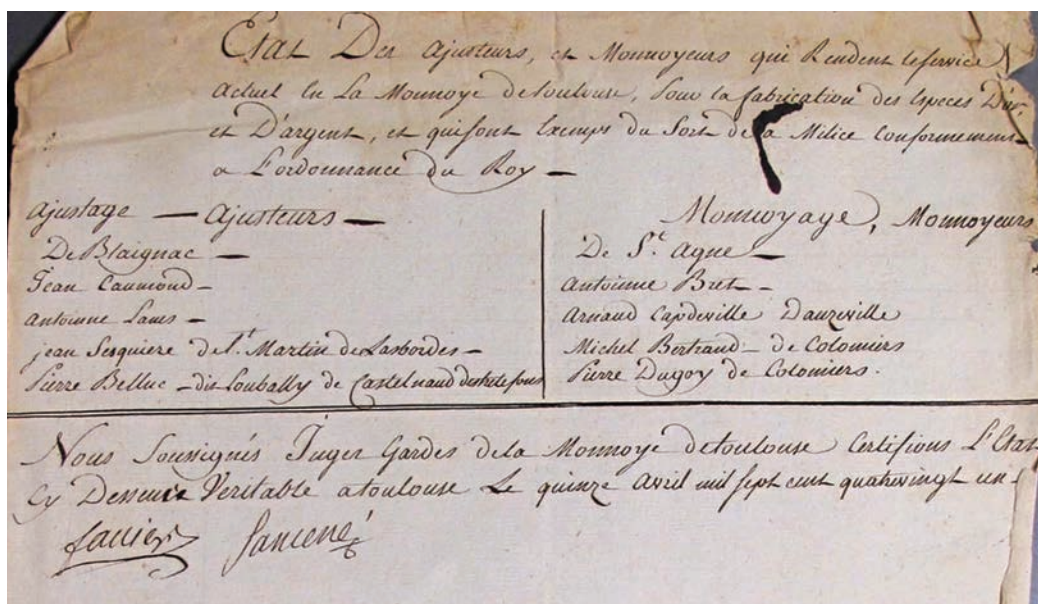 Etat Des ajusteurs, et Monnoyeurs qui Rendent le service
actuel en La Monnoye de toulouse, sous la fabrication des Especes D'or
et D'argent, et qui sont Exemps du Sort de la Milice Conformement
a L'ordonnance du Roy —
ajustage — ajusteurs —
De Blaignac —
Jean Caumond —
antoinne Lanes —
jean Sesquiere de St. Martin de Lasbordes —
Pierre Belluc — dit Loubally de Castelnaud destretefons
Monnoyage, Monnoyeurs
De St. agne —
antoinne Bret —
arnaud Capdeville Dauzeville
Michel Bertrand — de Colomiers
Pierre Dugoy de Colomiers.
Nous Soussignés Juges Gardes de la Monnoye de toulouse Certifions L'Etat
Cy Dessus Veritable a toulouse Le quinze avril mil sept cent quatrevingt un